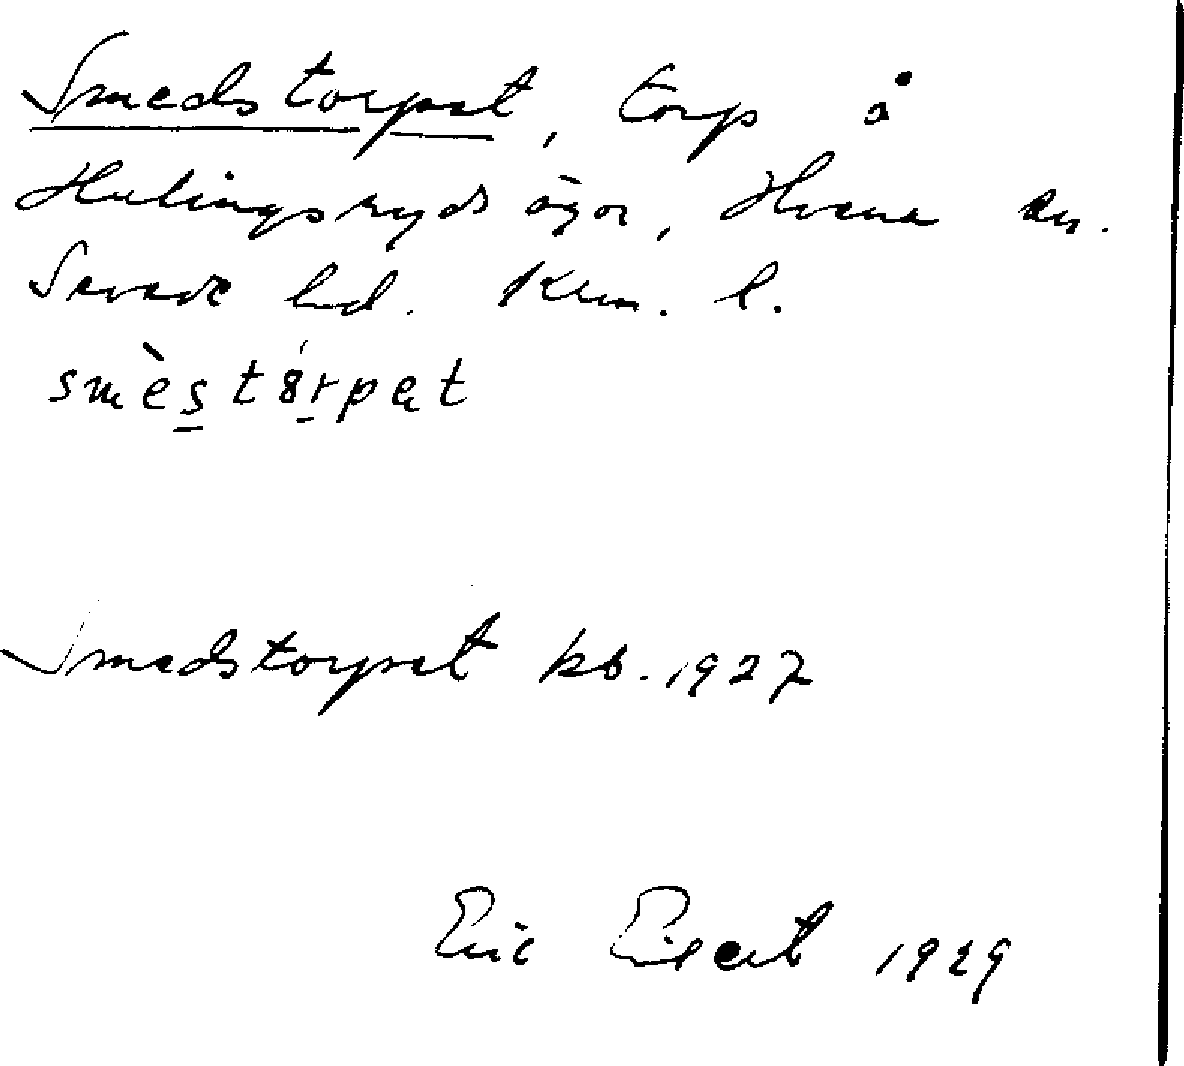 Smedstorpet, torp å
Hulingsryds ägor, Hvena sn.
Sevede hd. Klm. l.
smèstórpet
Smedstorpet kb. 1927
Eric Elgert 1929